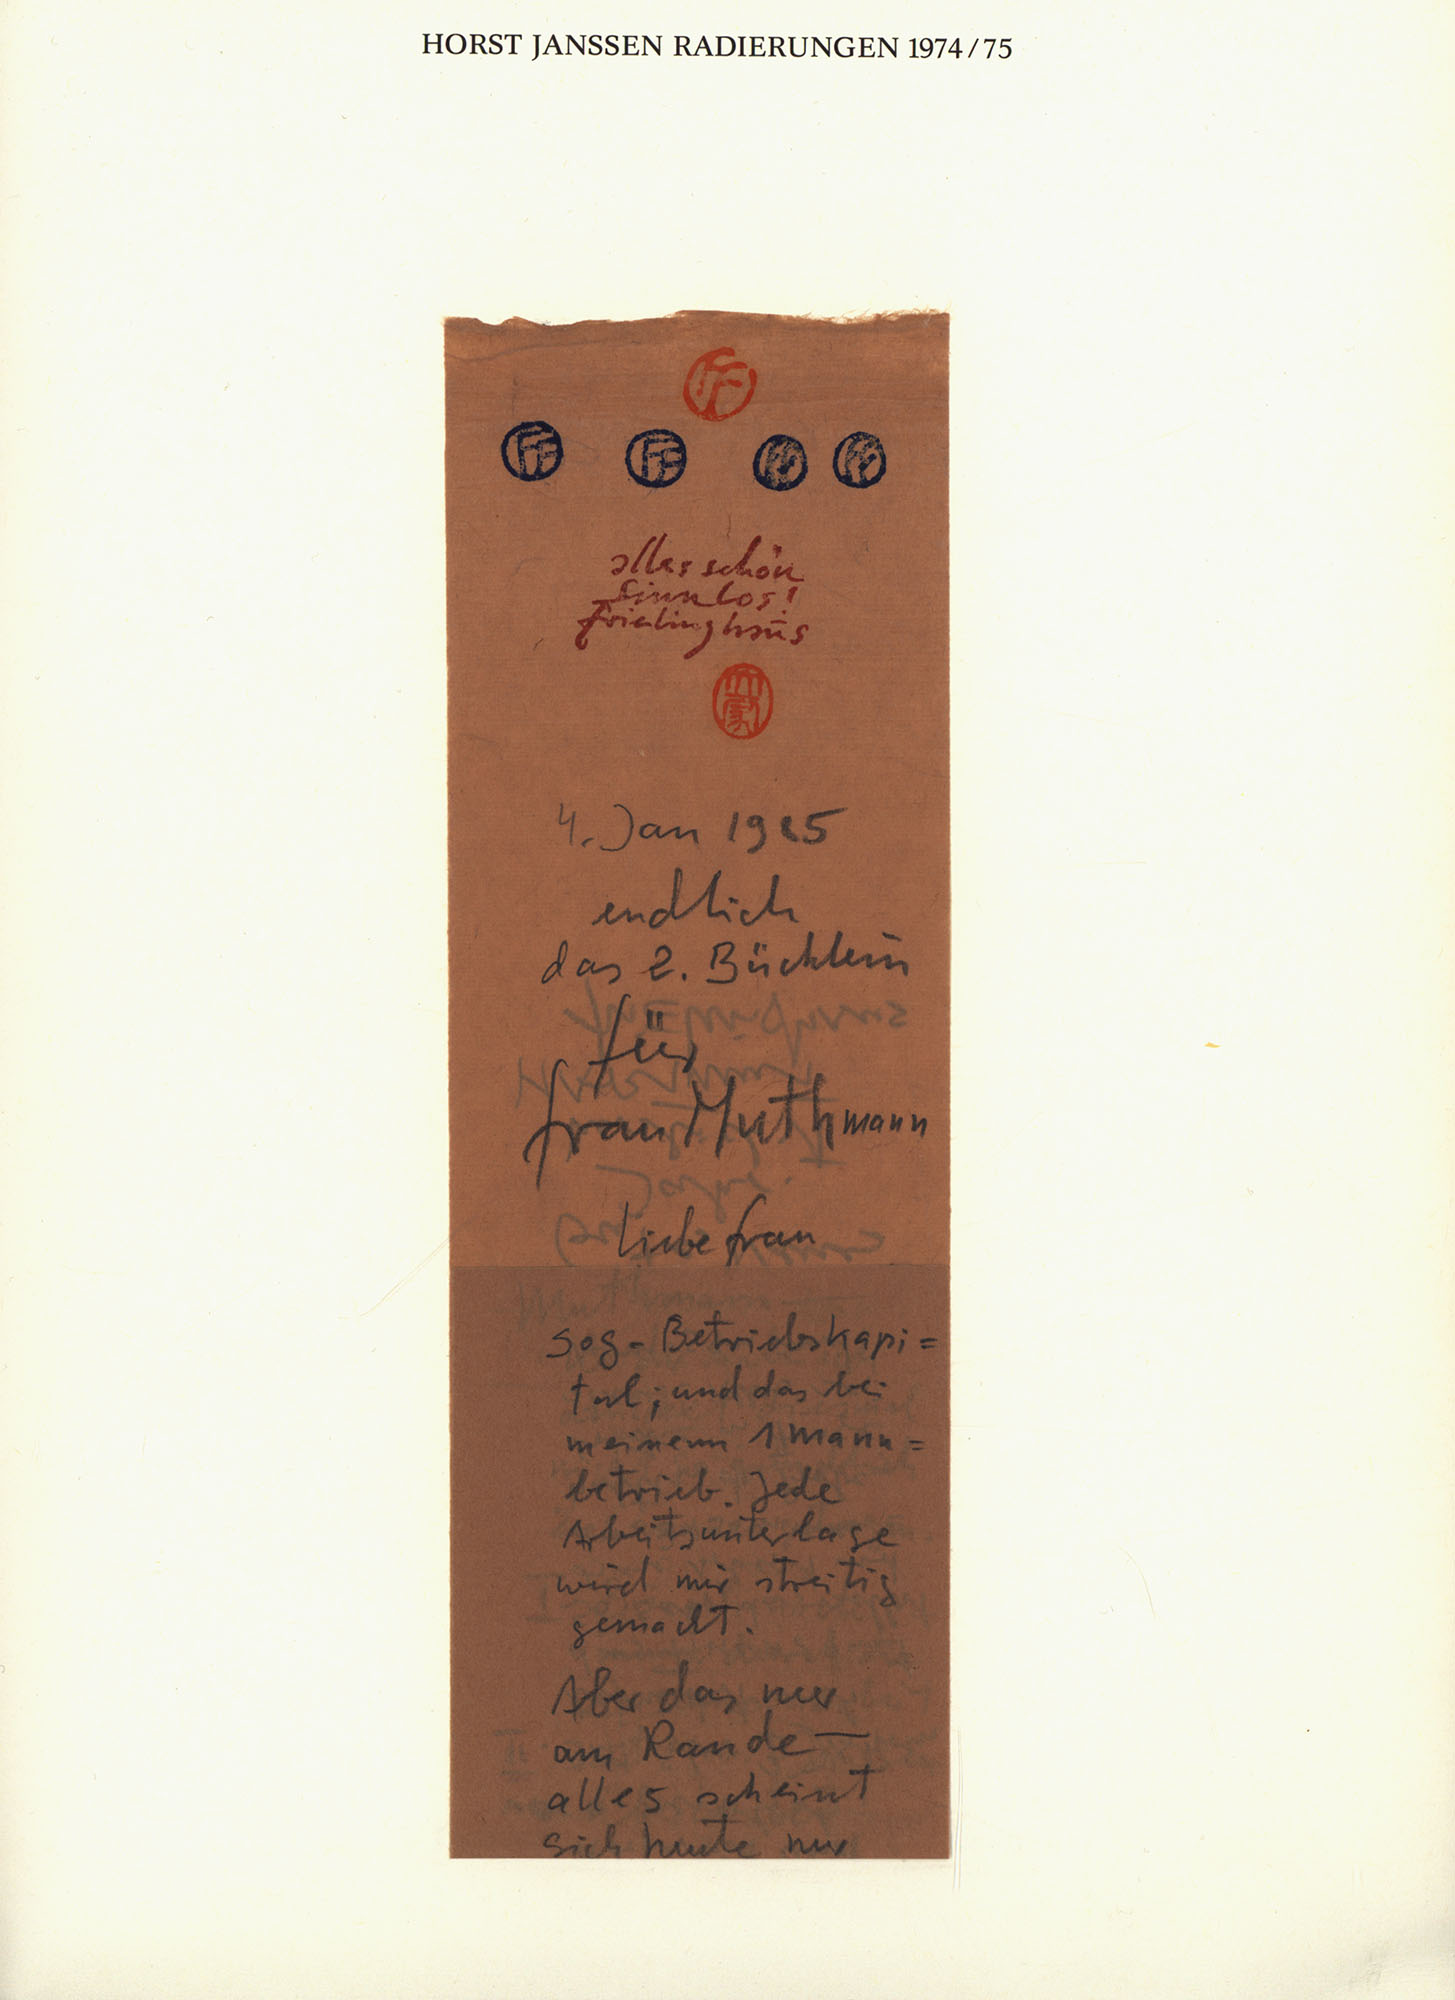 HORST JANSSEN RADIERUNGEN 1974/75
FF
FF FF
alles schön
sinnlos!
Frielinghaus
4. Jan 1985
endlich
das 2. Büchlein
für
frau Muthmann
liebe frau
sog. Betriebskapi=
tal; und das bei
meinem 1 mann=
betrieb. Jede
Arbeitsunterlage
wird mir streitig
gemacht.
Aber das nur
am Rande —
alles scheint
sich heute nur